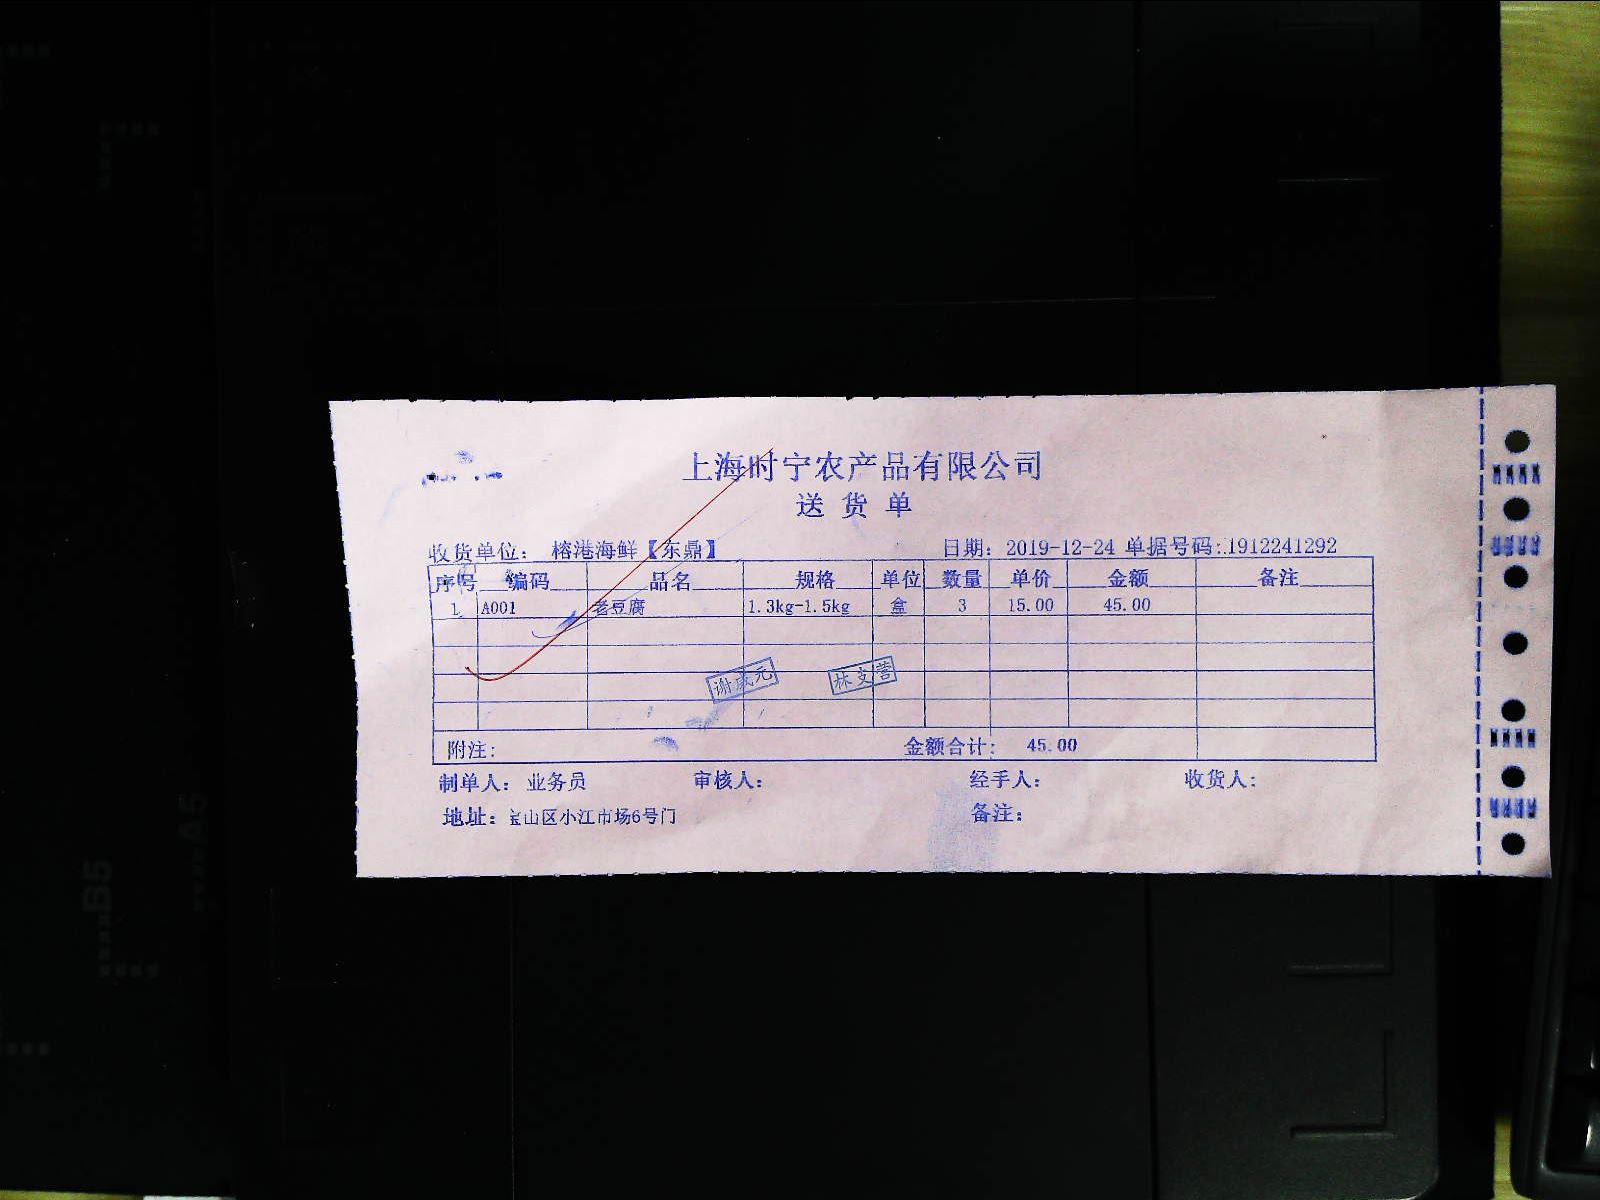 上海时宁农产品有限公司
送货单
收货单位： 榕港海鲜【东鼎】 日期：2019-12-24 单据号码:1912241292
序号 编码 品名 规格 单位 数量 单价 金额 备注
1 A001 老豆腐 1.3kg-1.5kg 盒 3 15.00 45.00
谢成元 林支营
附注: 金额合计: 45.00
制单人：业务员 审核人： 经手人： 收货人:
地址：宝山区小江市场6号门 备注：
A5
B5